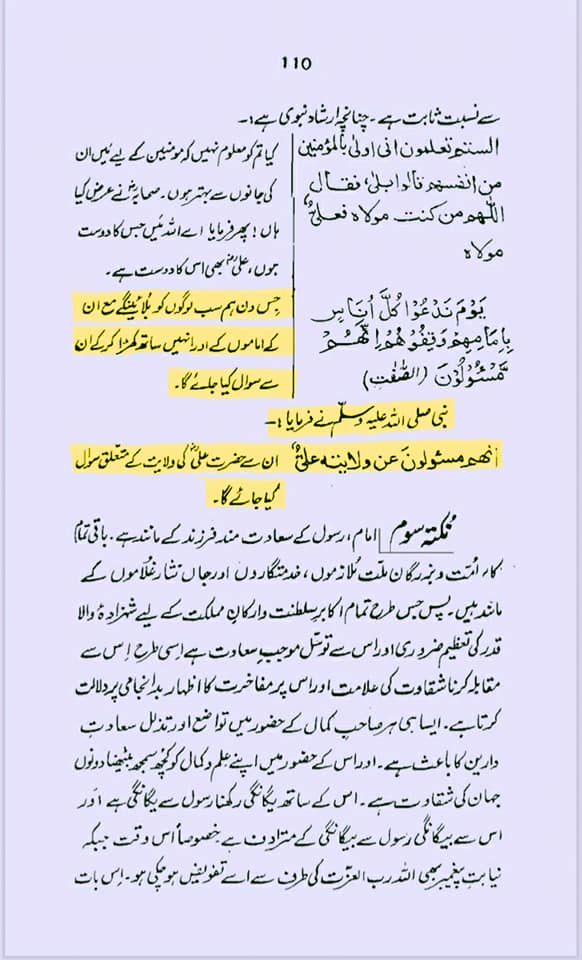 110
سے نسبت ثابت ہے۔ چنانچہ ارشاد نبوی ہے:۔
الستم تعلمون انی اولیٰ بالمؤمنین
من انفسھم قالوا بلیٰ، فقال
اللّٰھم من کنت مولاہ فعلیٌّ
مولاہ
کیا تم کو معلوم نہیں کہ مومنین کے لیے میں ان
کی جانوں سے بہتر ہوں۔ صحابہؓ نے عرض کیا
ہاں! پھر فرمایا اے اللہ میں جس کا دوست
ہوں، علیؓ بھی اس کا دوست ہے۔
یَوْمَ نَدْعُوْا کُلَّ اُنَاسٍ
بِاِمَامِهِمْ وَقِفُوْهُمْ اِنَّهُمْ
مَّسْئُوْلُوْنَ (الصّٰفّٰت)
جس دن ہم سب لوگوں کو بلائینگے مع ان
کے اماموں کے اور انہیں ساتھ کھڑا کر کے ان
سے سوال کیا جائے گا۔
نبی صلی اللہ علیہ وسلم نے فرمایا:۔
انھم مسئولونَ عن ولایتہ علیٌّ
ان سے حضرت علیؓ کی ولایت کے متعلق سوال
کیا جائے گا۔
نکتہ سوم امام، رسول کے سعادت مند فرزند کے مانند ہے۔ باقی تمام
اکابر امت و بزرگان ملت ملازموں، خدمتگاروں اور جاں نثار غلاموں کے
مانند ہیں۔ پس جس طرح تمام اکابر سلطنت و ارکانِ مملکت کے لیے شہزادۂ والا
قدر کی تعظیم ضروری اور اس سے توسّل موجبِ سعادت ہے اسی طرح اس سے
مقابلہ کرنا شقاوت کی علامت اور اس پر مفاخرت کا اظہار بدانجامی پر دلالت
کرتا ہے۔ ایسا ہی ہر صاحبِ کمال کے حضور میں تواضع اور تذلل سعادتِ
دارین کا باعث ہے۔ اور اس کے حضور میں اپنے علم و کمال کو کچھ سمجھ بیٹھنا دونوں
جہان کی شقاوت ہے۔ اس کے ساتھ یگانگی رکھنا رسول سے یگانگی ہے اور
اس سے بیگانگی رسول سے بیگانگی کے مترادف ہے خصوصاً اس وقت جبکہ
نیابتِ پیغمبر بھی اللہ رب العزت کی طرف سے اسے تفویض ہو چکی ہو۔ اس بات